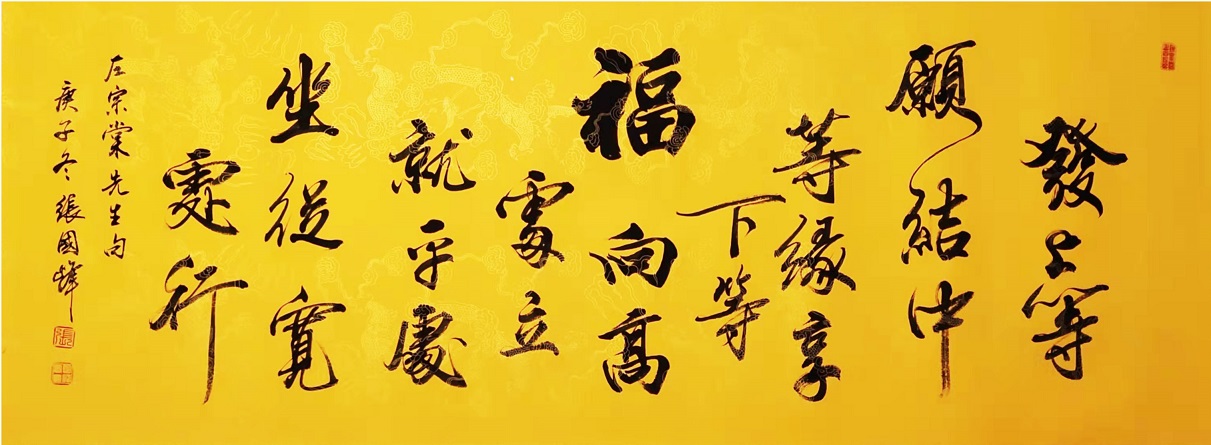 發上等
願結中
等緣享
下等
福向高
處立
就平處
坐從寬
處行
左宗棠先生句
庚子冬張國